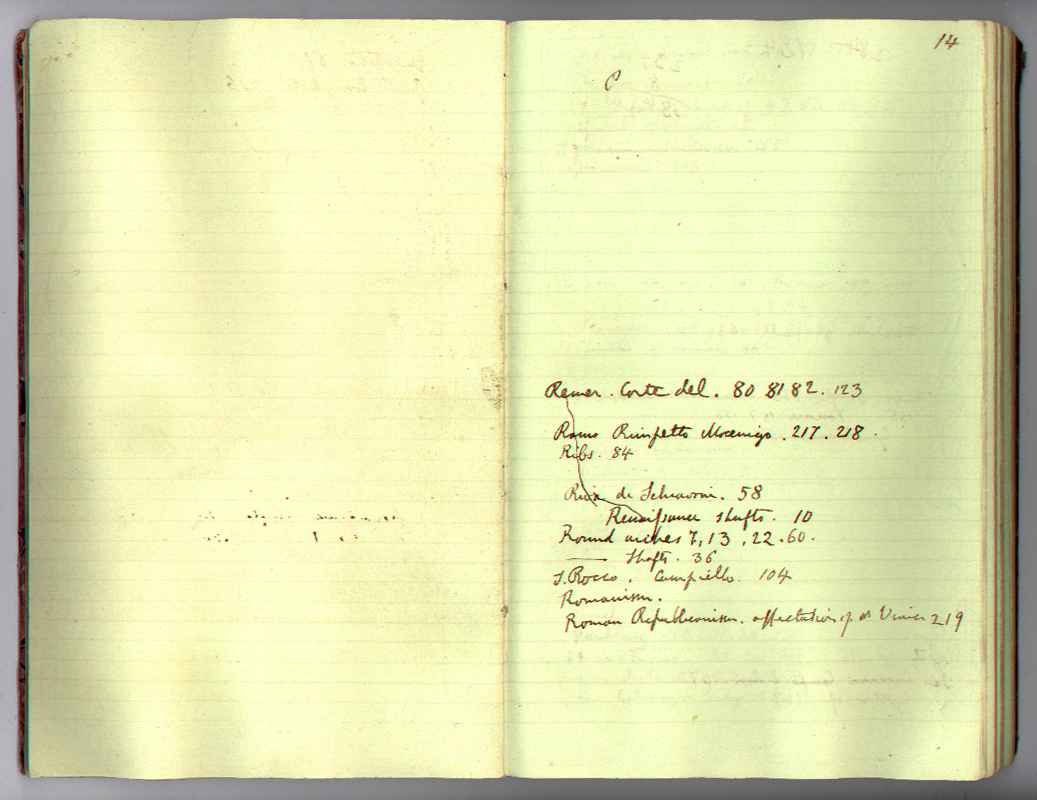 14
Remer. Corte del. 80 81 82. 123
Ramo Rimpetto Mocenigo. 217. 218.
Ribs. 84
Riva de Schiavoni. 58
Renaissance shafts. 10
Round arches 7, 13. 22. 60.
—— Shafts. 36
S. Rocco. Campiello. 104
Romanism.
Roman Republicanism. affectation of at Venice 219